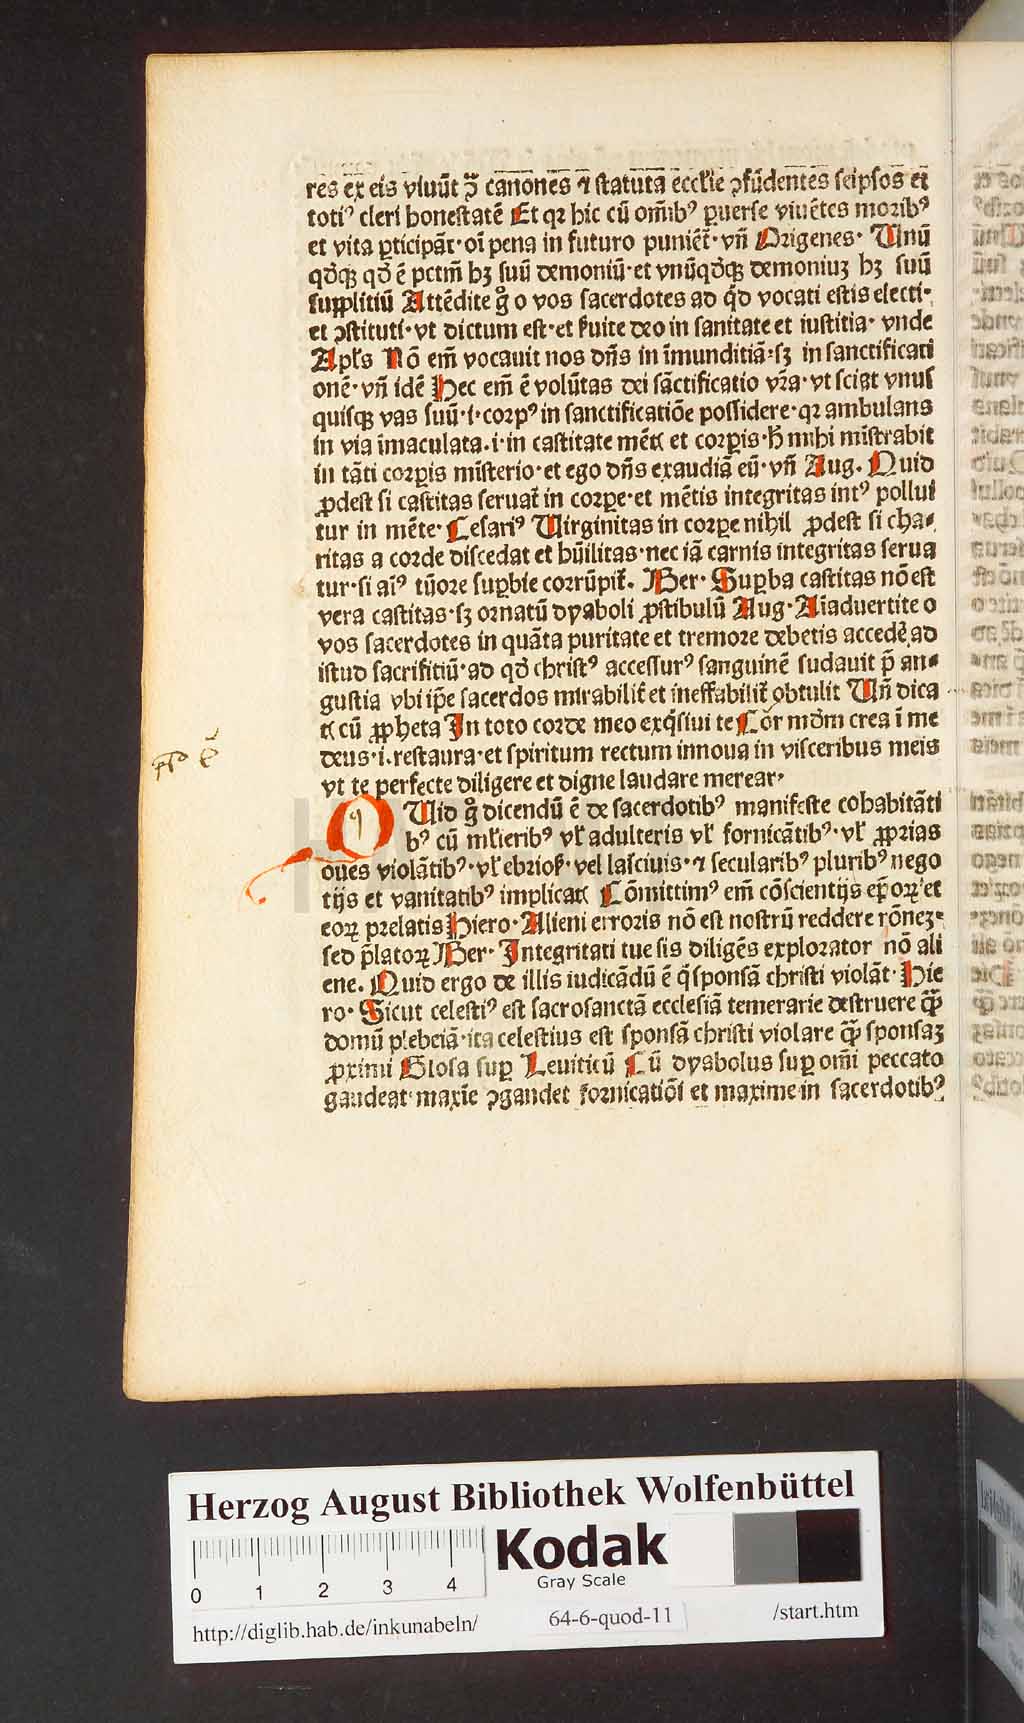 res ex eis viuūt ꝯͣ canones ⁊ statuta eccłie ꝯfūdentes seipsos et
totiꝰ cleri honestatē Et qꝛ hic cū om̄ibꝰ ꝑuerse viuētes moribꝰ
et vita ꝑticipāt·oī pena in futuro puniēt̄·vn̄ Origenes· Unū
qd̓qꝫ qd̓ ē pctm̄ hꝫ suū demoniū·et vnūqd̓qꝫ demoniuꝫ hꝫ suū
suppłitiū Attēdite g̊ o vos sacerdotes ad qd̓ vocati estis electi·
et ꝯstituti·vt dictum est·et s̓uite deo in sanitate et iustitia· vnde
Apłs Nō em̄ vocauit nos dn̄s in īmunditiā·sꝫ in sanctificati
onē·vn̄ idē Hec em̄ ē volūtas dei sāctificatio vr̄a·vt sciat vnus
quisqꝫ vas suū·i·corpꝰ in sanctificatiōe possidere·qꝛ ambulans
in via īmaculata·i·in castitate mēt̄ et corꝑis·h̄ mihi mīstrabit
in tāti corꝑis mīsterio·et ego dn̄s exaudiā eū·vn̄ Aug. Quid
ꝓdest si castitas seruat̄ in corꝑe·et mētis integritas intꝰ pollui
tur in mēte·Cesariꝰ Uirginitas in corꝑe nihil ꝓdest si cha⸗
ritas a corde discedat et hūilitas·nec iā carnis integritas serua
tur·si aīꝰ tūore suꝑbie corrūpit̄. Ber· Suꝑba castitas nō est
vera castitas·sꝫ ornatū dyaboli ꝓstibulū Aug·Aīaduertite o
vos sacerdotes in quāta puritate et tremore debetis accedē ad
istud sacrifitiū·ad qd̓ christꝰ accessurꝰ sanguinē sudauit p̄ an⸗
gustia vbi ip̄e sacerdos mirabilit̄ et ineffabilit̄ obtulit Un̄ dica
t̄ cū ꝓpheta In toto corde meo exq̇siui te Cor mdm̄ crea ī me
deus·i·restaura·et spiritum rectum innoua in visceribus meis
vt te perfecte diligere et digne laudare merear·
QUid g̊ dicendū ē de sacerdotibꝰ manifeste cohabitāti
bꝰ cū młieribꝰ vł adulteris vł fornicātibꝰ·vł ꝓprias
oues violātibꝰ·vł ebriosꝭ·vel lasciuis·⁊ secularibꝰ pluribꝰ nego
tijs et vanitatibꝰ implicat̄ Cōmittimꝰ em̄ cōscientijs ep̄oꝝ et
eoꝝ prelatis Hiero·Alieni erroris nō est nostrū reddere rōneꝫ⸗
sed p̄latoꝝ Ber· Integritati tue sis diligēs explorator nō ali
ene. Quid ergo de illis iudicādū ē q̇ sponsā christi violāt·Hie
ro· Sicut celestiꝰ est sacrosanctā ecclesiā temerarie destruere qꝫ̄
domū plebeiā·ita celestius est sponsā christi violare qꝫ̄ sponsaꝫ
ꝓximi Glosa suꝑ Leuiticū Cū dyabolus suꝑ om̄i peccato
gaudeat·maxīe ꝯgaudet fornicatiōī et maxime in sacerdotibꝰ
Herzog August Bibliothek Wolfenbüttel
0 1 2 3 4
Kodak
Gray Scale
http://diglib.hab.de/inkunabeln/
64-6-quod-11
/start.htm